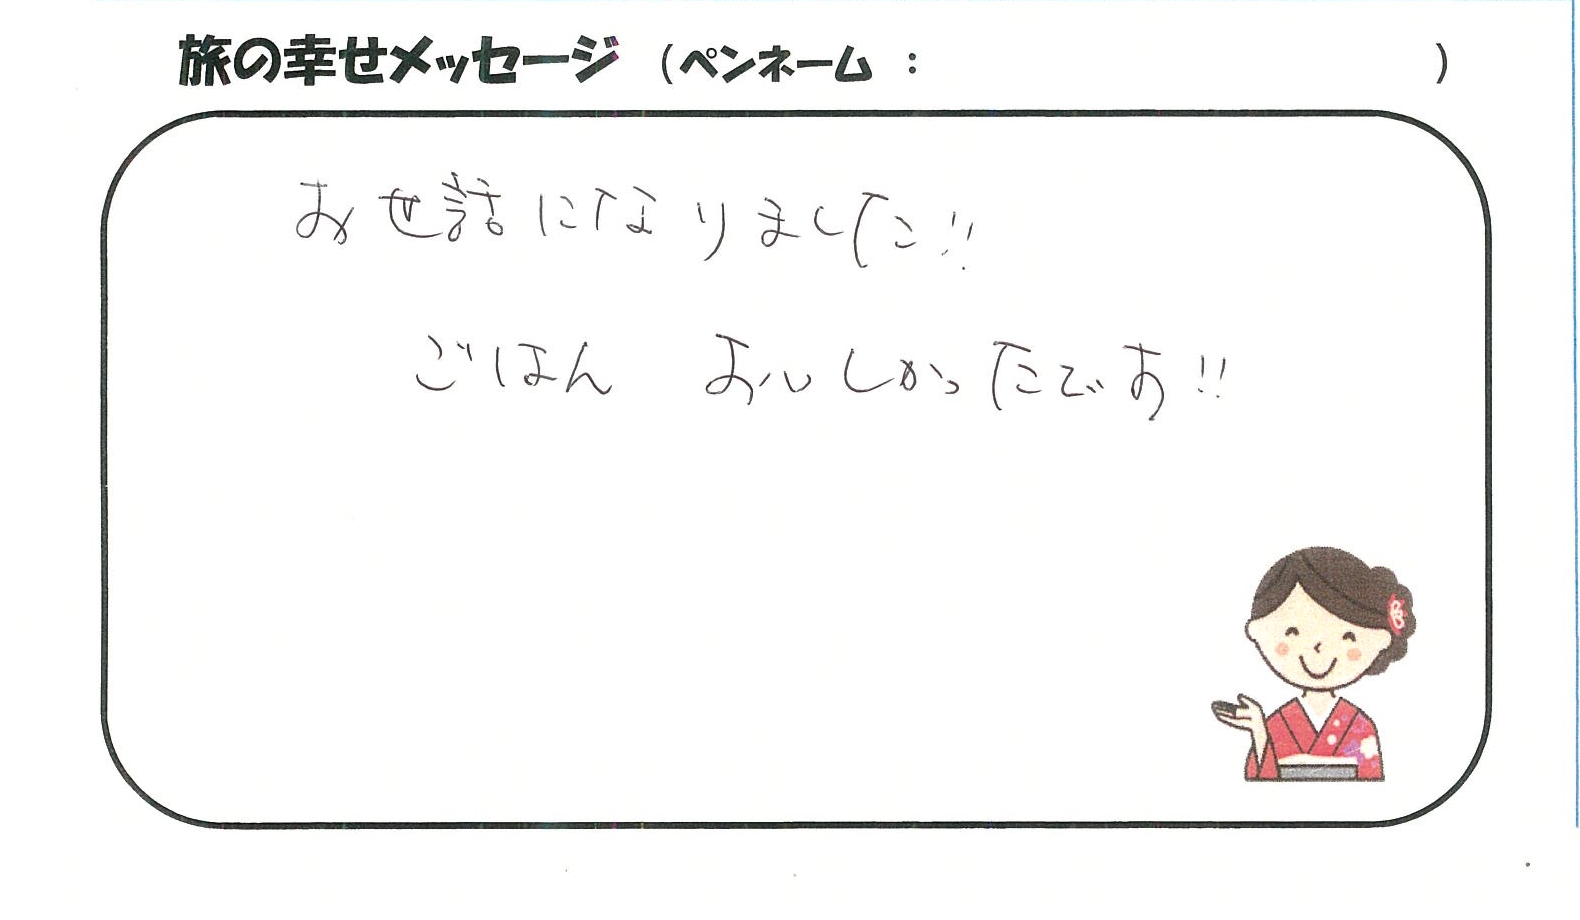 旅の幸せメッセージ (ペンネーム : )
お世話になりました!!
ごはん おいしかったです!!